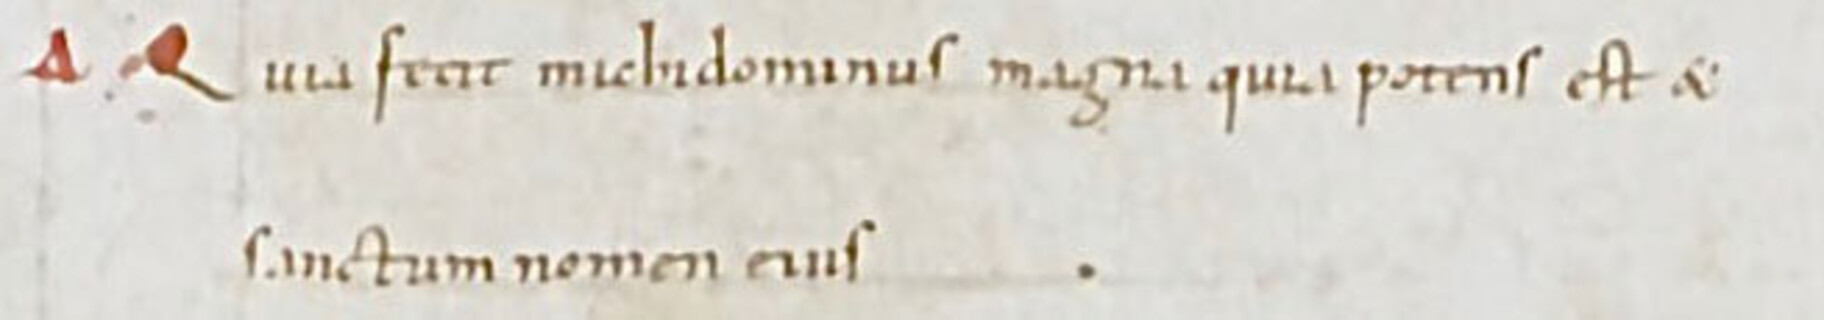 A Quia fecit michi dominus magna quia potens est &
sanctum nomen eius .